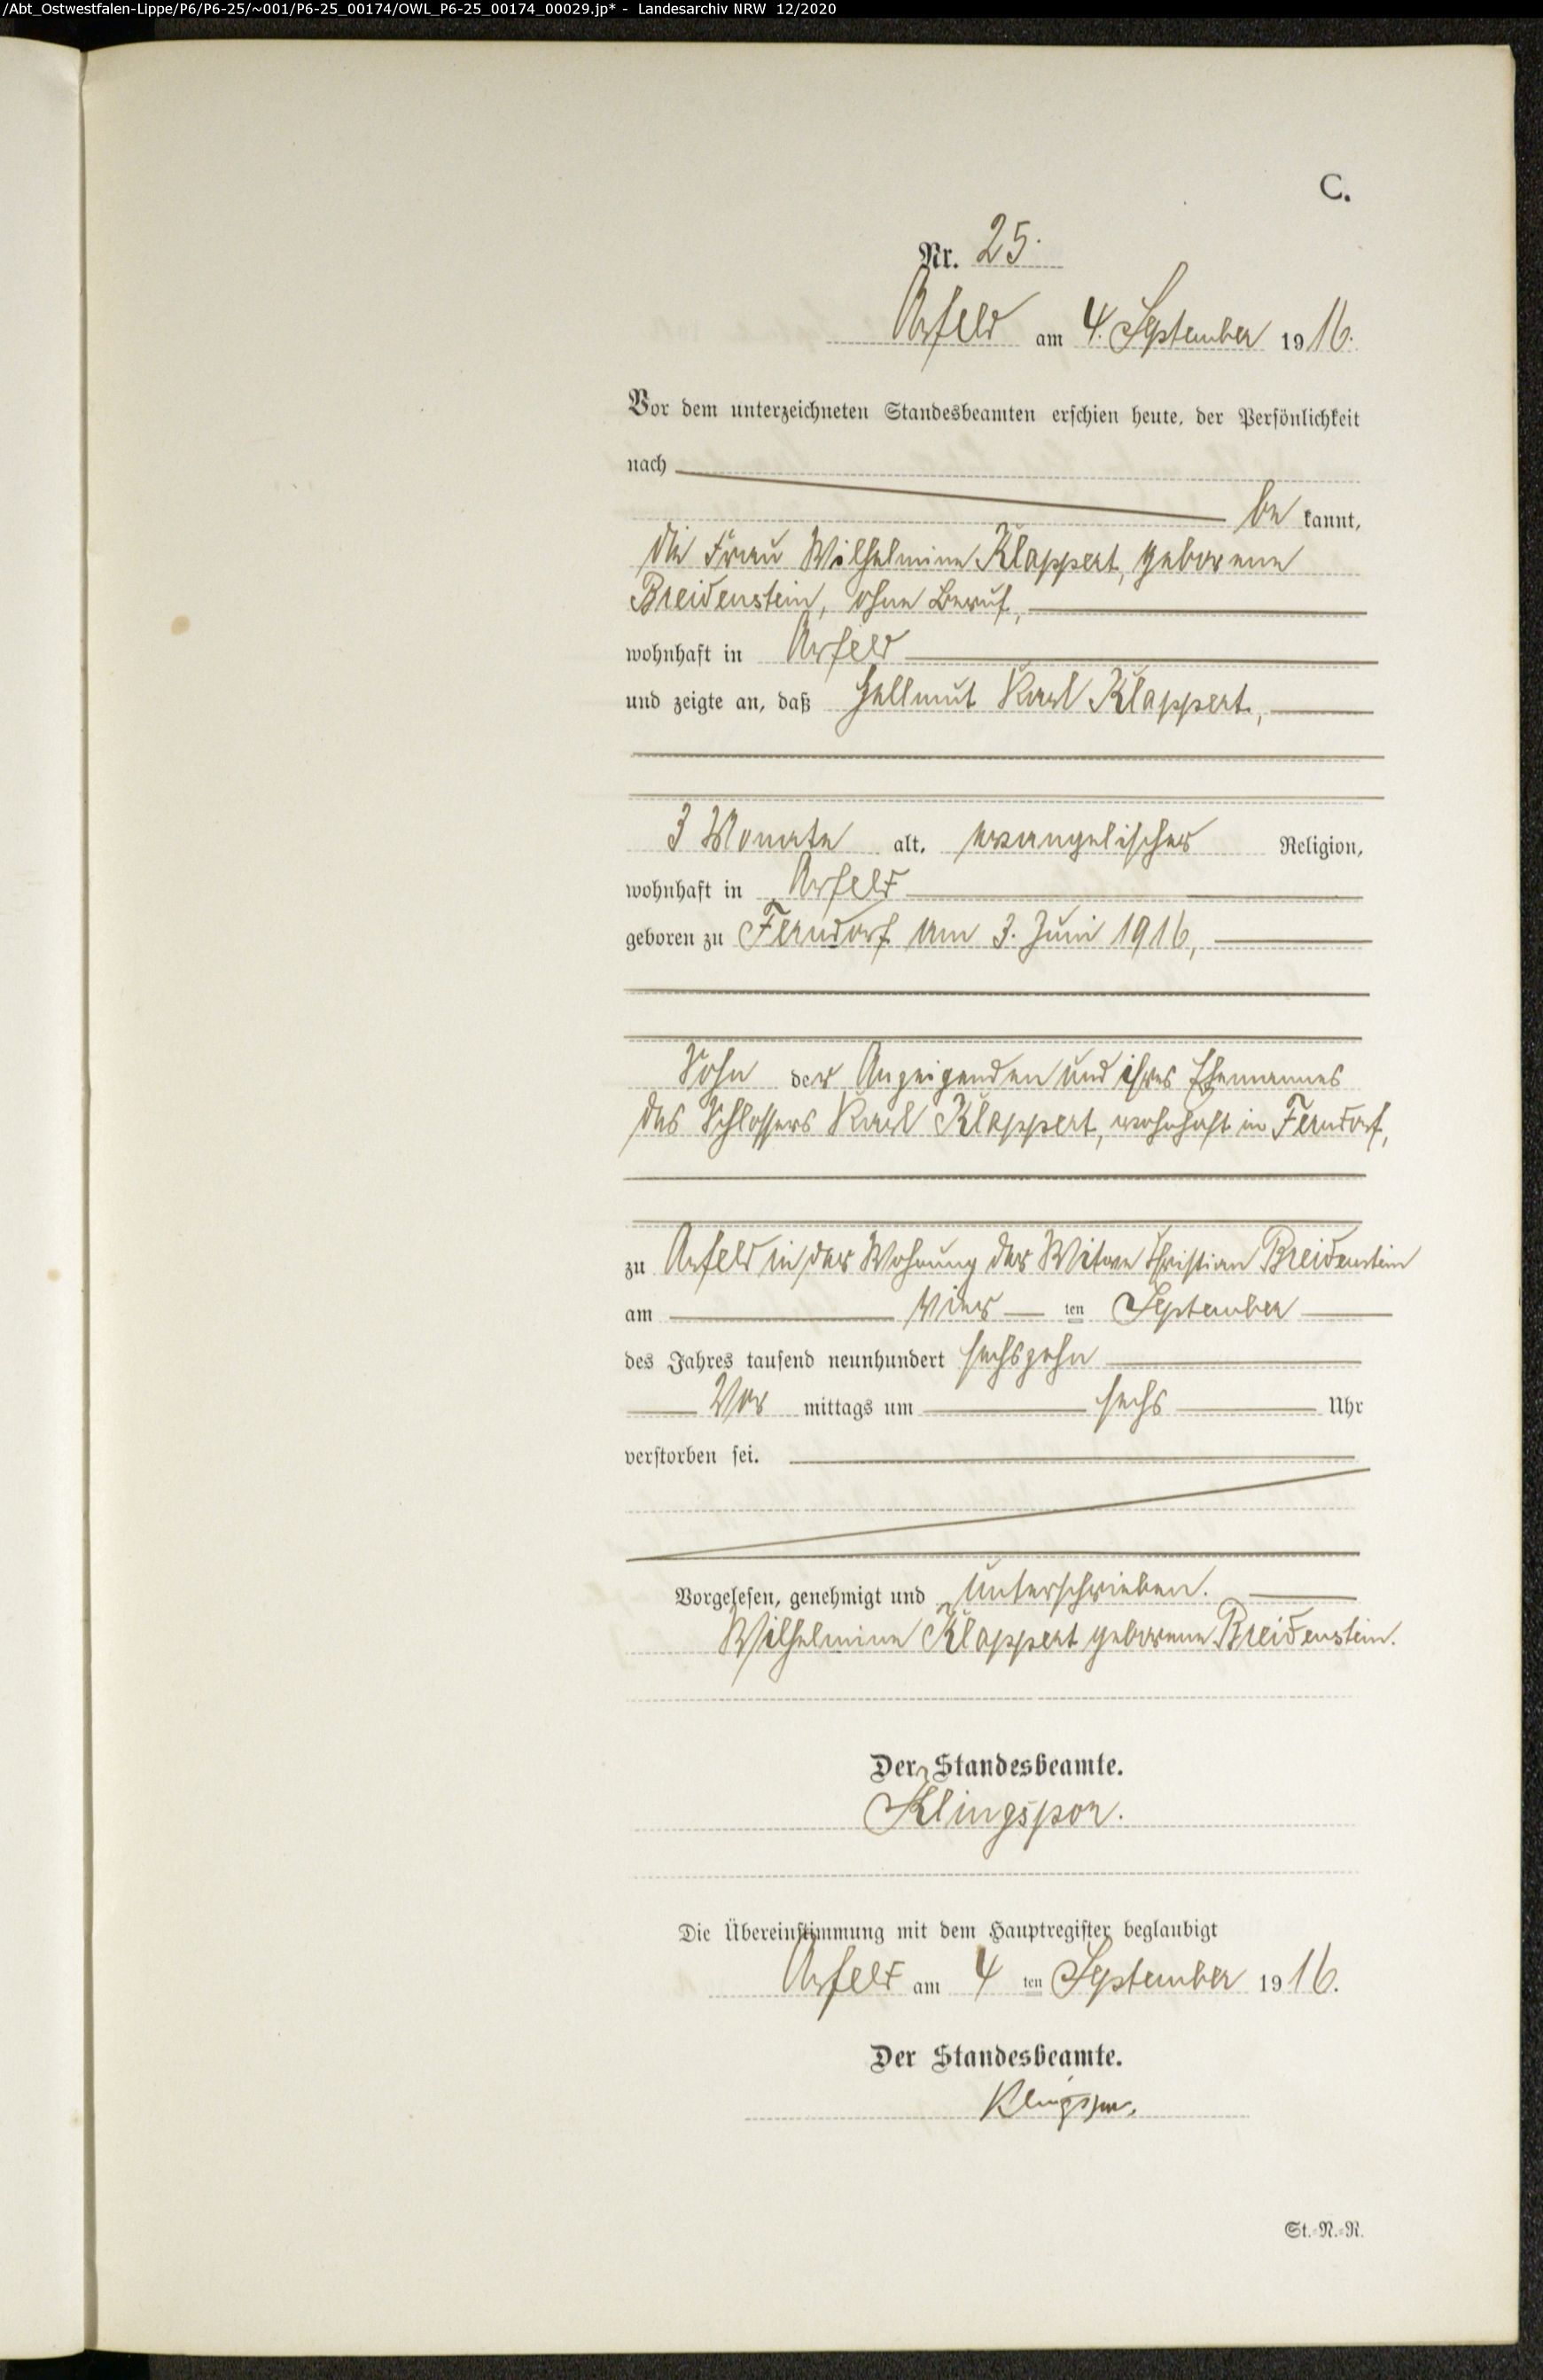 /Abt_Ostwestfalen-Lippe/P6/P6-25/~001/P6-25_00174/OWL_P6-25_00174_00029.jp* - Landesarchiv NRW 12/2020
C.
Nr. 25.
Arfeld am 4. September 1916.
Vor dem unterzeichneten Standesbeamten erschien heute, der Persönlichkeit
nach
bekannt,
die Frau Wilhelmine Klappert, geborene
Breidenstein, ohne Beruf,
wohnhaft in Arfeld
und zeigte an, daß Hellmut Karl Klappert,
3 Monate alt, evangelischer Religion,
wohnhaft in Arfeld
geboren zu Ferndorf am 3. Juni 1916,
Sohn der Anzeigenden und ihres Ehemannes
des Schlossers Karl Klappert, wohnhaft in Ferndorf,
zu Arfeld in der Wohnung der Witwe Christian Breidenstein
am vier ten September
des Jahres tausend neunhundert sechszehn
Vor mittags um sechs Uhr
verstorben sei.
Vorgelesen, genehmigt und unterschrieben.
Wilhelmine Klappert geborene Breidenstein.
Der Standesbeamte.
Klingspor.
Die Übereinstimmung mit dem Hauptregister beglaubigt
Arfeld am 4 ten September 1916.
Der Standesbeamte.
Klingspor.
St.-N.-R.